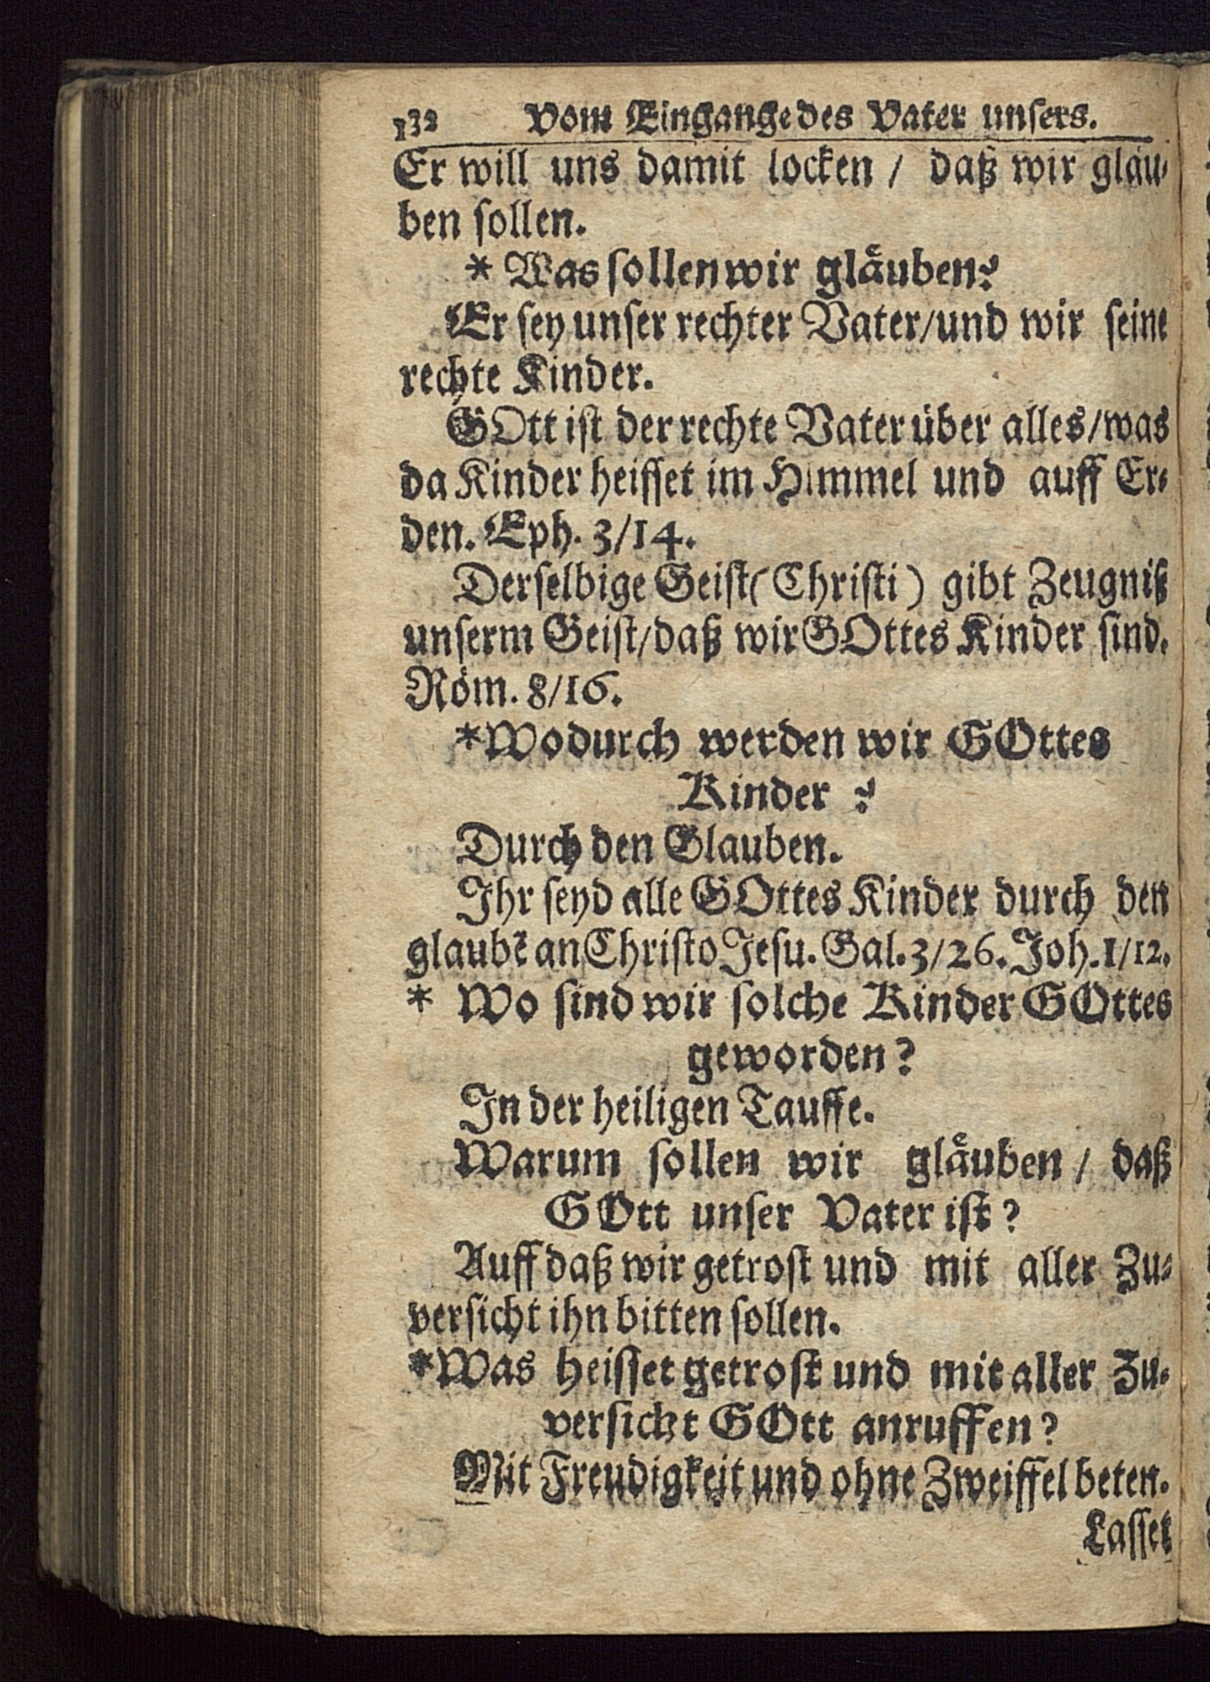 132 Vom Eingange des Vater unsers.
Er will uns damit locken / daß wir gläu-
ben sollen.
* Was sollen wir gläuben?
Er sey unser rechter Vater/und wir seine
rechte Kinder.
GOtt ist der rechte Vater über alles/was
da Kinder heisset im Himmel und auff Er-
den. Eph. 3/14.
Derselbige Geist (Christi) gibt Zeugniß
unserm Geist/daß wir GOttes Kinder sind.
Röm. 8/16.
*Wodurch werden wir GOttes
Kinder ?
Durch den Glauben.
Ihr seyd alle GOttes Kinder durch den
glaubē an Christo Jesu. Gal.3/26. Joh.1/12.
* Wo sind wir solche Kinder GOttes
geworden?
In der heiligen Tauffe.
Warum sollen wir gläuben / daß
GOtt unser Vater ist?
Auff daß wir getrost und mit aller Zu-
versicht ihn bitten sollen.
*Was heisset getrost und mit aller Zu-
versicht GOtt anruffen?
Mit Freudigkeit und ohne Zweiffel beten.
Lasset